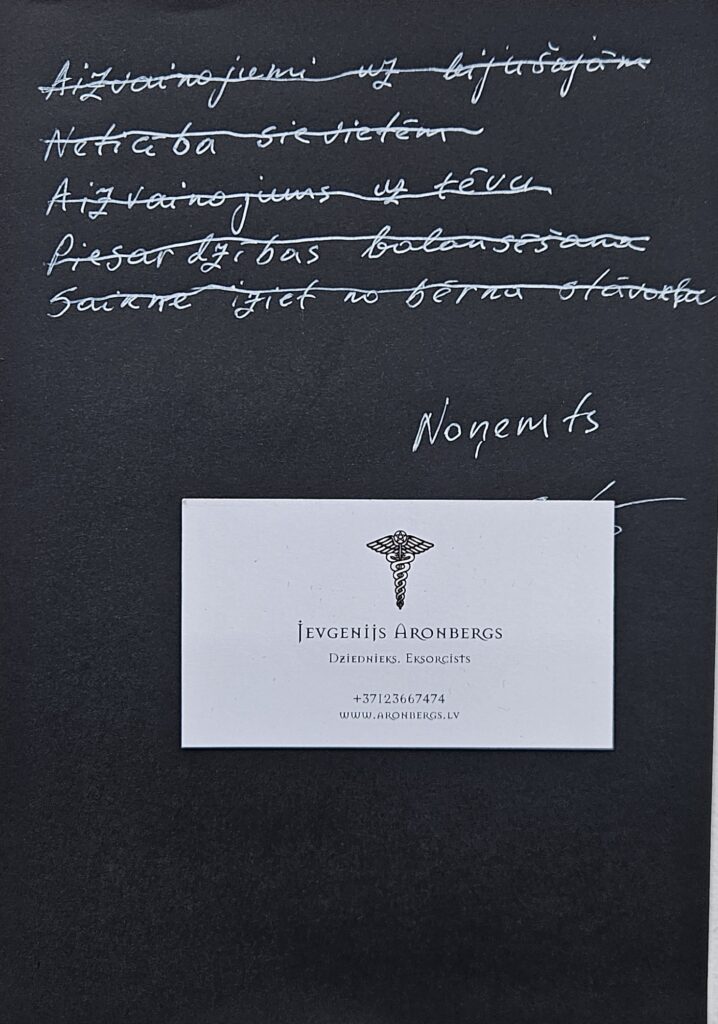 Aizvainojiemi uz bijušajām
Neticība sievietēm
Aizvainojums uz tēvu
Piesardzības balansēšana
Sainne iziet no bērna stāvokļa
Noņemts
Jevgenijs Aronbergs
Dziednieks. Eksorcists
+37123667474
www.aronbergs.lv